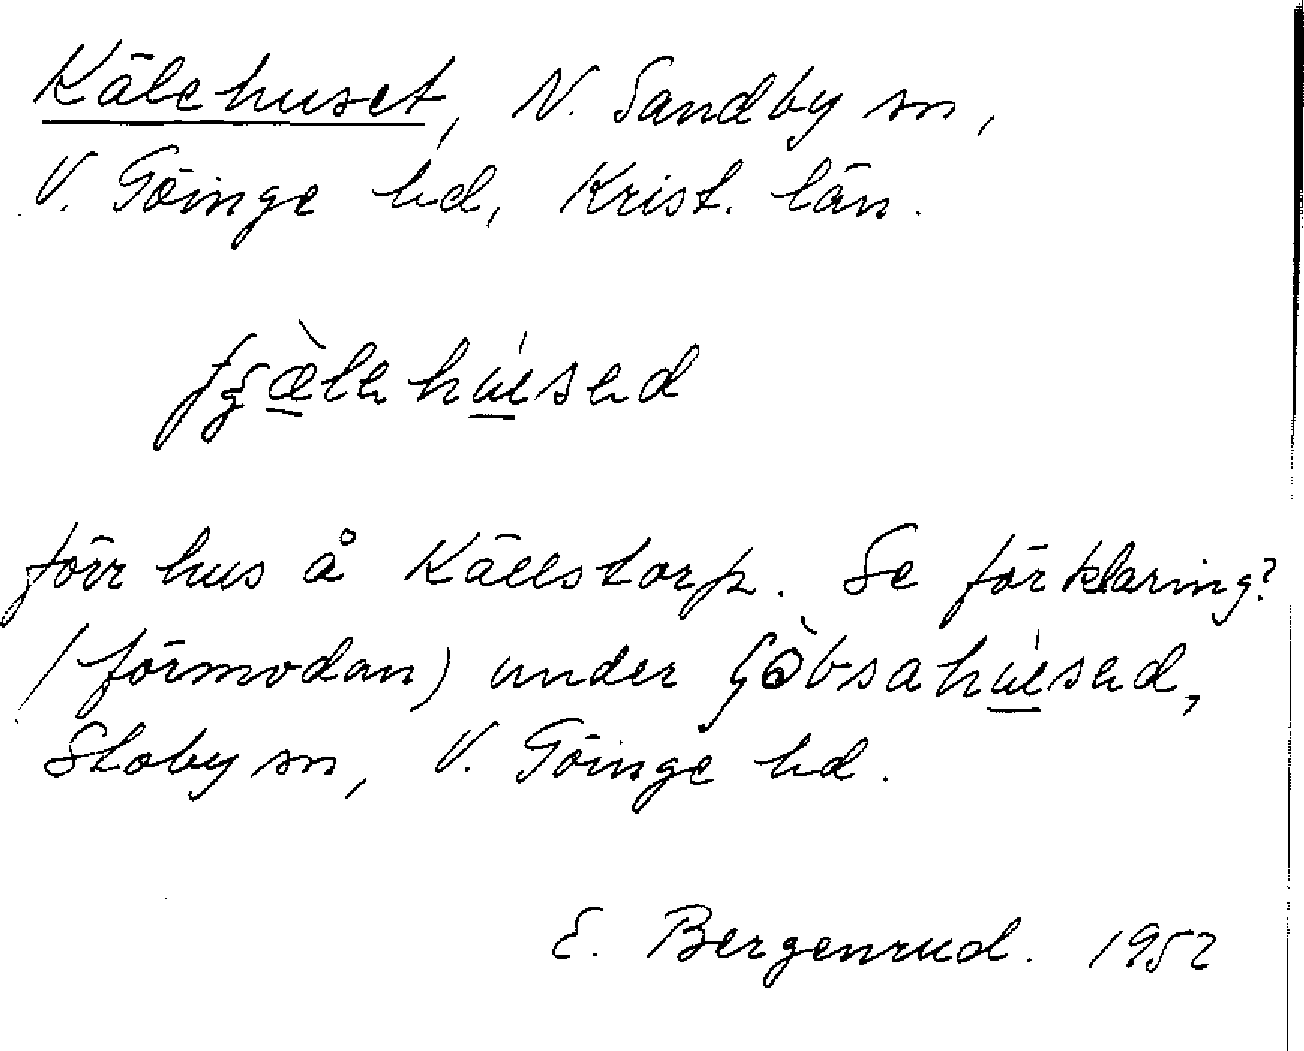 Kälehuset, N. Sandby sn,
V. Göinge hd, Krist. län.
förr hus å Källstorp. Se förklaring?
(förmodan) under
Stoby sn, V. Göinge hd.
E. Bergenrud. 1952